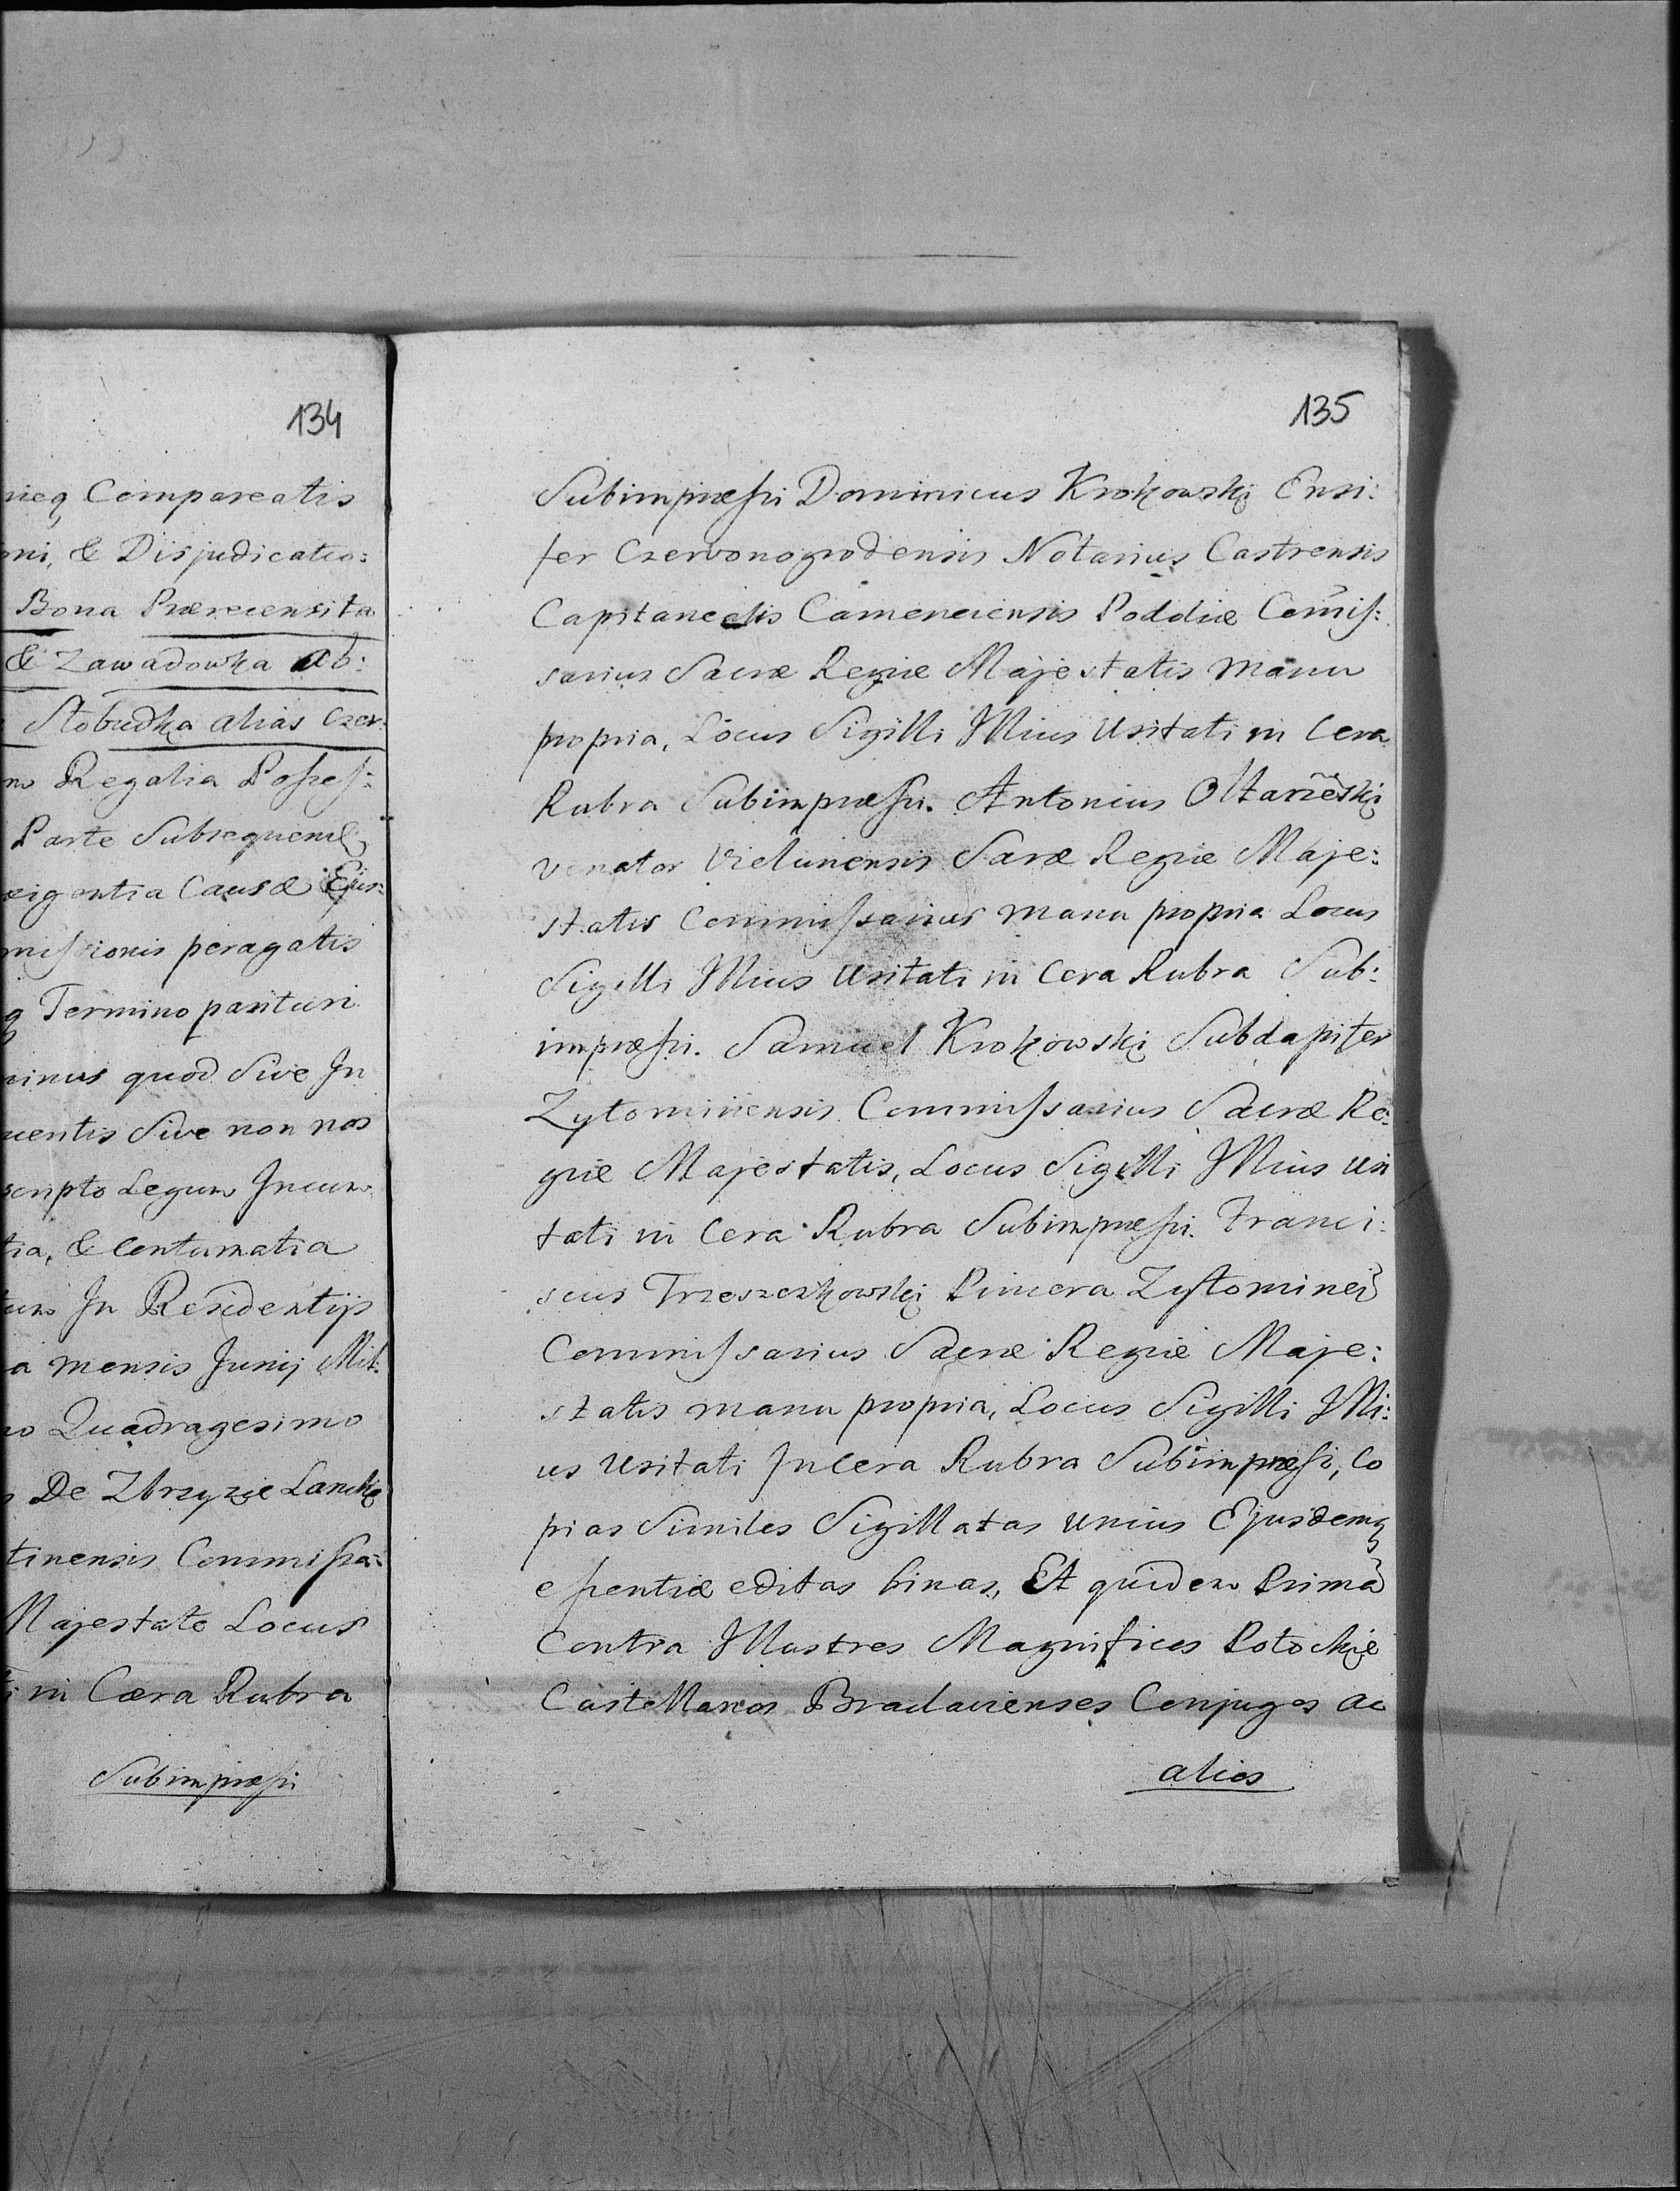 134
nieq Compareatis
oni, & Disjudicatio:
Bona Prærecensita
& Zawadowka ab:
Slobudka alias Czer:
Regalia Possess:
Parte Subsequend
xigentia Causæ Ejus:
missionis peragatis
q Termino parituri
minus quod Sive In
uentis Sive non nos
scripto Legum Incum
tia, & Contumatia
tum In Residentijs
a mensis Junij Mil:
no Quadragesimo
De Zbrzyzie Lancki
tinensis Commissa:
Majestate Locus
ti in Cæra Rubra
Subimpræssi
135
Subimpræssi Dominicus Krokowski Ensi:
fer Czervonogrodensis Notarius Castrensis
Capitanealis Camenecensis Podoliæ Comis:
sarius Sacræ Regiæ Majestatis manu
propria, Locus Sigilli Illius Usitati in Cera
Rubra Subimpræssi. Antonius Ołtarzeski
venator Vielunensis Saræ Regiæ Maje:
statis Commissarius manu propria Locus
Sigilli Illius Usitati in Cera Rubra Sub:
impræssi. Samuel Krokowski Subdapifer
Zytominensis Commissarius Sacræ Re:
giæ Majestatis, Locus Sigilli Illius Usi
tati in Cera Rubra Subimpræssi. Franci:
scus Trzeszczkowski Pincera Zytominen
Commissarius Sacræ Regiæ Maje:
statis manu propria, Locus Sigilli Illi:
us Usitati In Cera Rubra Subimpræssi, Co
pias Similes Sigillatas unius Ejusdemq
essentiæ editas binas, Et quidem Prima
Contra Illustres Magnificos Potockie
Castellanos Braclavienses Conjuges ac
alios